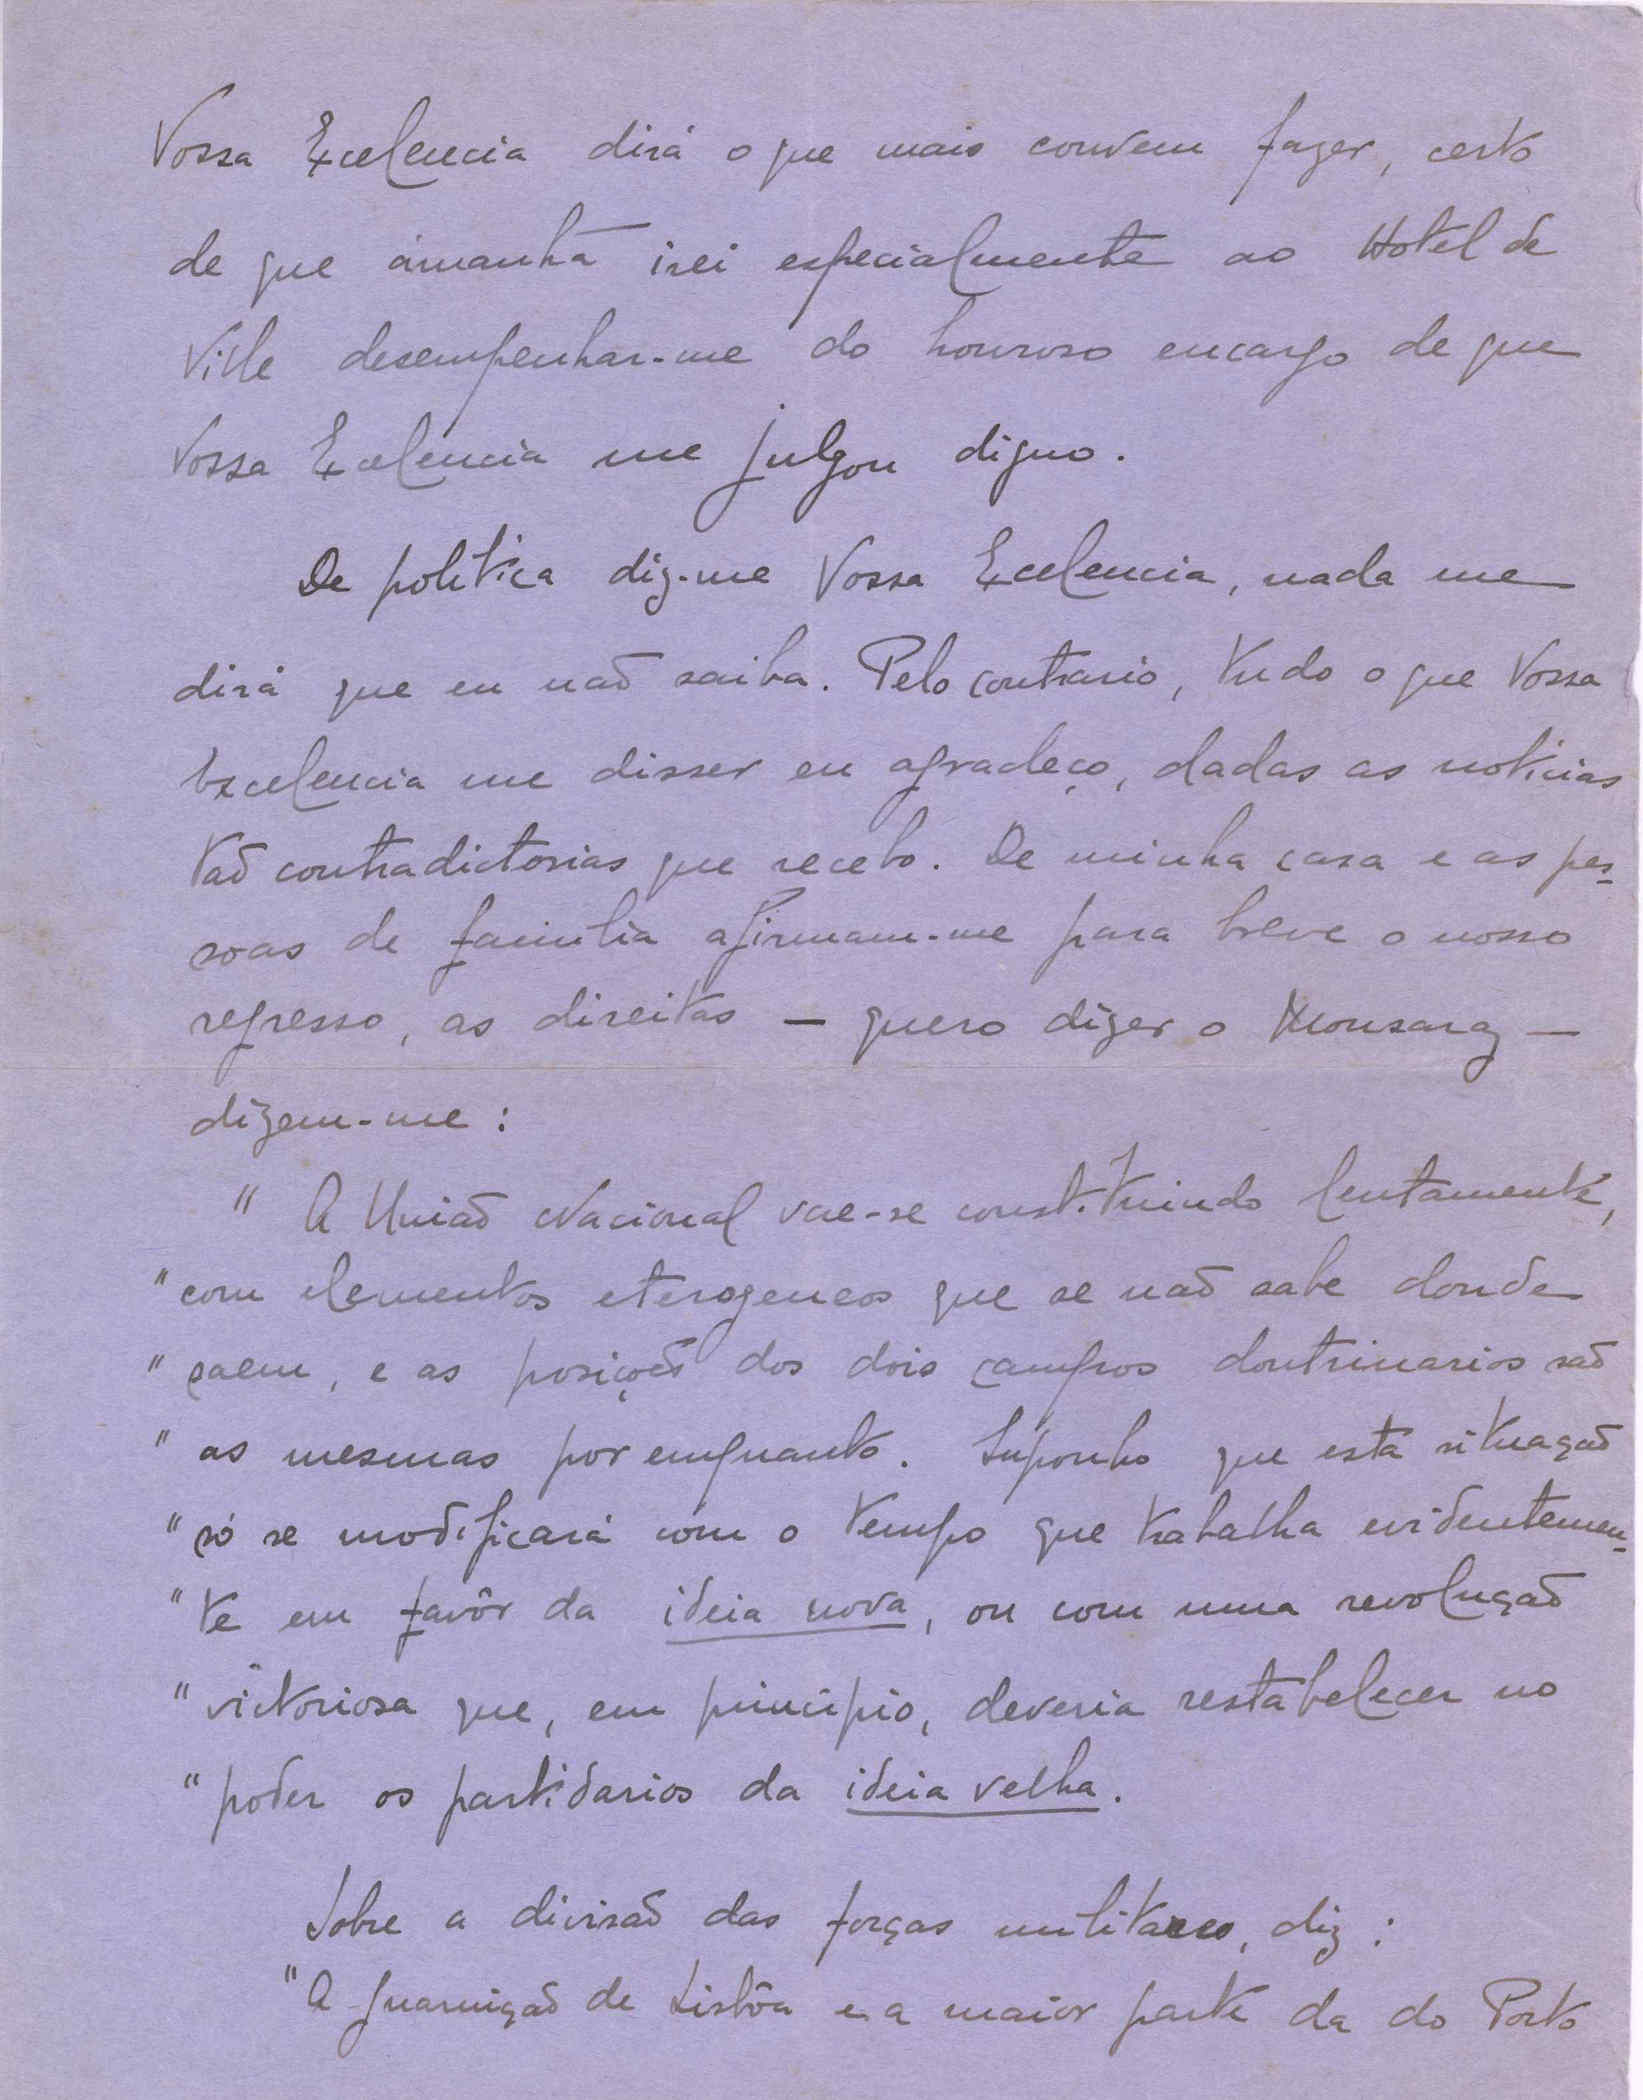 Vossa Excelencia dirá o que mais convem fazer, certo
de que ámanhã irei especialmente ao Hotel de
Ville desempenhar-me do honroso encargo de que
Vossa Excelencia me julgou digno.
De politica diz-me Vossa Excelencia, nada me
dirá que eu não saiba. Pelo contrario, tudo o que Vossa
Excelencia me disser eu agradeço, dadas as noticias
tão contradictorias que recebo. De minha casa e as pes-
soas de familia afirmam-me para breve o nosso
regresso, as direitas — quero dizer o Monsaraz —
dizem-me :
" A União Nacional vae-se constituindo lentamente,
" com elementos eterogeneos que se não sabe donde
" saem, e as posições dos dois campos doutrinarios são
" as mesmas por emquanto. Suponho que esta situação
" só se modificará com o tempo que trabalha evidentemen-
" te em favôr da ideia nova, ou com uma revolução
" victoriosa que, em principio, deveria restabelecer no
" poder os partidarios da ideia velha.
Sobre a divisão das forças militares, diz :
" A guarnição de Lisbôa e a maior parte da do Porto